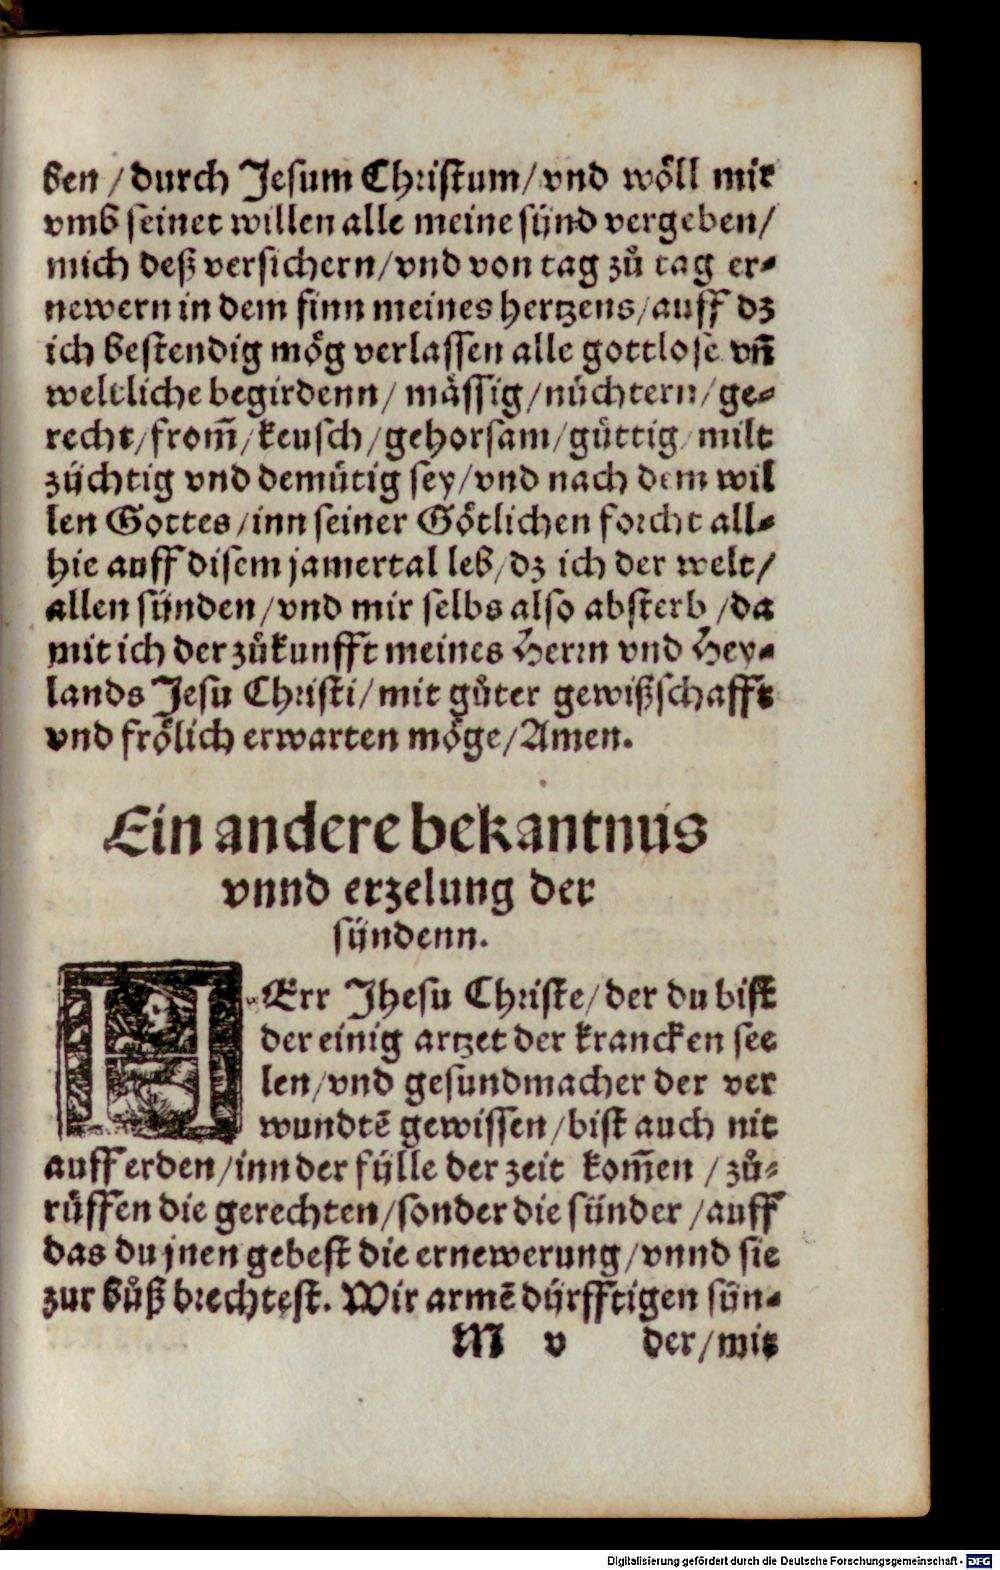 ben / durch Jesum Christum / vnd wöll mir
vmb seinet willen alle meine sünd vergeben /
mich deß versichern / vnd von tag zů tag er-
newern in dem sinn meines hertzens / auff dz
ich bestendig mög verlassen alle gottlose vñ
weltliche begirdenn / mässig / nüchtern / ge-
recht / from̃ / keusch / gehorsam / güttig / milt
züchtig vnd demütig sey / vnd nach dem wil
len Gottes / inn seiner Götlichen forcht all-
hie auff disem jamertal leb / dz ich der welt /
allen sünden / vnd mir selbs also absterb / da
mit ich der zůkunfft meines Herrn vnd Hey-
lands Jesu Christi / mit gůter gewißschafft
vnd frölich erwarten möge / Amen.
Ein andere bekantnus
vnnd erzelung der
sündenn.
HErr Jhesu Christe / der du bist
der einig artzet der krancken see
len / vnd gesundmacher der ver
wundtẽ gewissen / bist auch nit
auff erden / inn der fülle der zeit kom̃en / zů-
rüffen die gerechten / sonder die sünder / auff
das du jnen gebest die ernewerung / vnnd sie
zur bůß brechtest. Wir armẽ dürfftigen sün-
M v der / mit
Digitalisierung gefördert durch die Deutsche Forschungsgemeinschaft - DFG